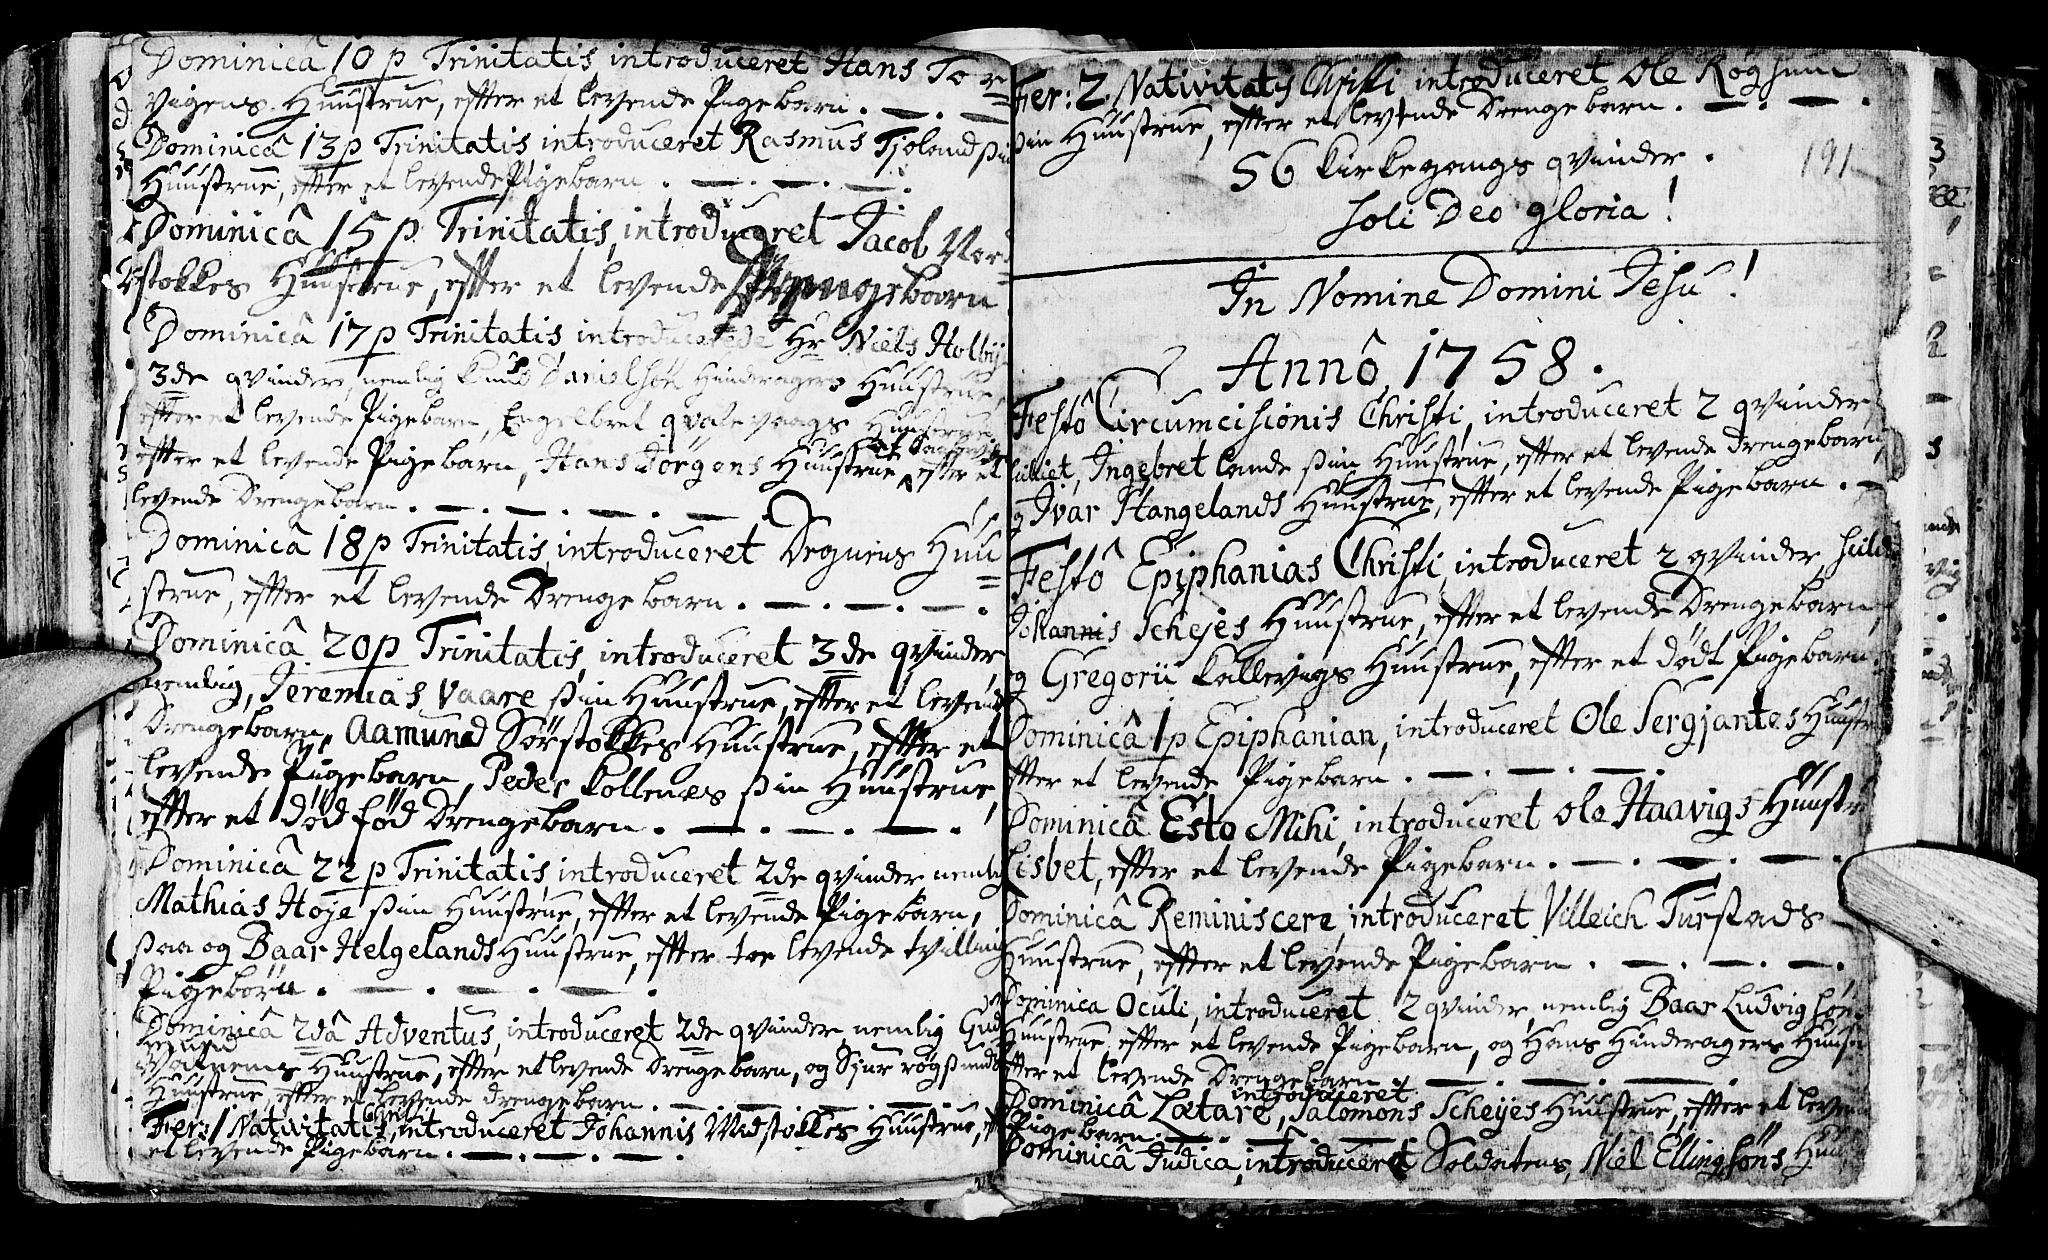 Dominicâ 10 p Trinitatis introduceret Hans Tor=
vigens Huustrue, effter et levende Pigebarn.
Dominicâ 13 p Trinitatis introduceret Rasmus Tjoland sin
Huustrue, effter et levende Pigebarn.
Dominicâ 15 p Trinitatis, introduceret Jacob Nor=
stokkes Huustrue, effter et levende Drengebarn
Dominicâ 17 p Trinitatis introducerede Hr Niels Holbÿe
3de qvinder, nemlig Knud Danielsøn Hinderagers Huustrue,
effter et levende Pigebarn, Engelbret qvalevaags Huustrue
effter et levende Pigebarn, Hans Jörgens Huustrue effter et
levende Drengebarn.
Dominicâ 18 p Trinitatis, introduceret Degnens Huu=
strue, effter et levende Drengebarn.
Dominicâ 20 p Trinitatis, introduceret 3de qvinder,
nemlig, Jeremias Vaare sin Huustrue, effter et levende
Drengebarn, Aamund Sörstokkes Huustrue, effter et
levende Pigebarn, Peder Kollenæs sin Huustrue,
effter et död föd Drengebarn.
Dominicâ 22 p Trinitatis, introduceret 2de qvinder nemlig
Mathias Höje sin Huustrue, effter et levende Pigebarn,
saa og Baar Helgelands Huustrue, effter toe levende tvilling
Pigebörn.
Dominicâ 2dâ Adventus, introduceret 2de qvinder, nemlig Gud
mund
Vatnems Huustrue, effter et levende Drengebarn, og Siur Røgsunds
Huustrue, effter et levende Drengebarn.
Fer: 1 Nativitatis Christi, introduceret Johannis Midstokkes Huustrue,
et levende Pigebarn.
Fer: 2 Nativitatis Christi introduceret Ole Røgsund
sin Huustrue, effter et levende Drengebarn.
56 Kirkegangs qvinder.
191
Soli Deo gloria!
In Nomine Domini Jesu!
Annô 1758.
Festô Circumcisionis Christi, introduceret 2 qvinder,
Ingebret Lande sin Huustrue, effter et levende drengebarn,
og Ivar Stangelands Huustrue, effter et levende Pigebarn.
Festô Epiphanias Christi, introduceret 2 qvinder,
Johannis Schejes Huustrue, effter et levende Drengebarn,
og Gregorii Kallevigs Huustrue, effter et dödt Pigebarn.
Dominicâ 1 p Epiphanian, introduceret Ole Sergjantes Huustru
effter et levende Pigebarn.
Dominicâ Esto Mihi, introduceret Ole Haavigs Huustru
Lisbet, effter et levende Pigebarn.
Dominicâ Reminiscere, introduceret Villeich Turstads
Huustrue, effter et levende Pigebarn.
Dominica Oculi, introduceret 2 qvinder, nemlig Baar Ludvigsøns
Huustrue, effter et levende Pigebarn, og Hans Hinderagers Huust
effter et levende Drengebarn.
introduceret
Dominicâ Lætare, Salomons Schejes Huustrue, effter et levende
Pigebarn.
Dominicâ Judica, introduceret Soldatens, Niel Ellingsöns Huu